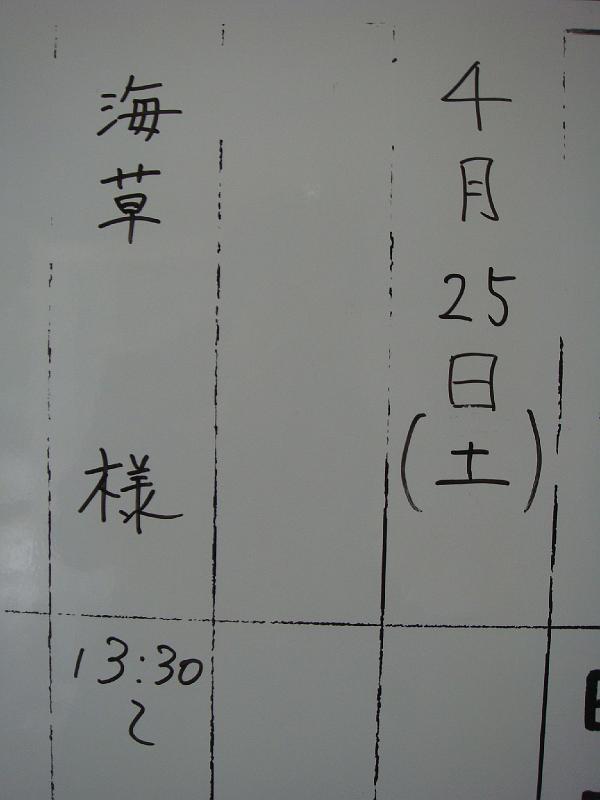 4月25日(土)
海草 様
13:30
〜